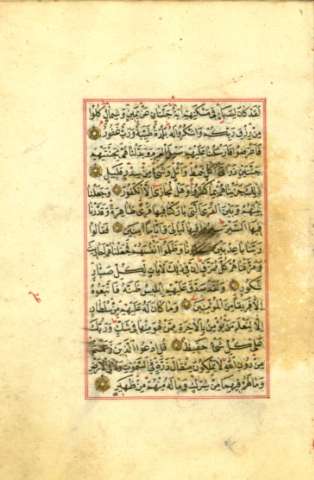 لقد كان لسبإ في مسكنهم آية جنتان عن يمين وشمال كلوا
من رزق ربكم واشكروا له بلدة طيبة ورب غفور
فأعرضوا فأرسلنا عليهم سيل العرم وبدلناهم بجنتيهم
جنتين ذواتي أكل خمط وأثل وشيء من سدر قليل
ذلك جزيناهم بما كفروا وهل نجازي إلا الكفور وجعلنا
بينهم وبين القرى التي باركنا فيها قرى ظاهرة وقدرنا
فيها السير سيروا فيها ليالي وأياما آمنين فقالوا
ربنا باعد بين أسفارنا وظلموا أنفسهم فجعلناهم أحاديث
ومزقناهم كل ممزق إن في ذلك لآيات لكل صبار
شكور ولقد صدق عليهم إبليس ظنه فاتبعوه
إلا فريقا من المؤمنين وما كان له عليهم من سلطان
إلا لنعلم من يؤمن بالآخرة ممن هو منها في شك وربك
على كل شيء حفيظ قل ادعوا الذين زعمتم
من دون الله لا يملكون مثقال ذرة في السموات ولا في الأرض
وما لهم فيهما من شرك وما له منهم من ظهير